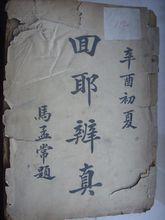 辛酉初夏
回耶辨真
馬孟常題